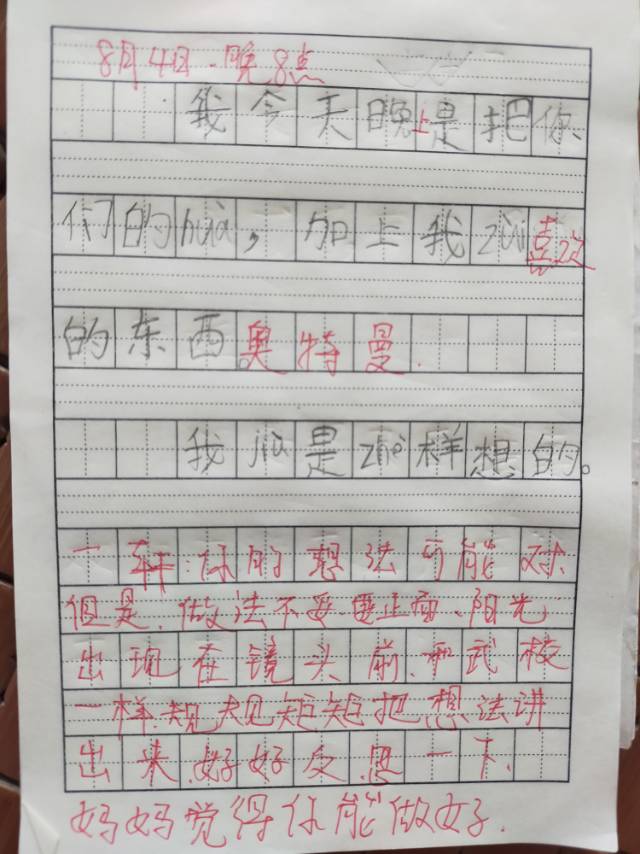 8月4日.晚8点
我今天晚上是把你
们的huà,加上我zuì喜欢
的东西奥特曼.
我jiù是zhè样想的。
一轩:你的想法可能对.
但是.做法不妥.要正面、阳光
出现在镜头前.和武校
一样规规矩矩把想法讲
出来.好好反思一下.
妈妈觉得你能做好.